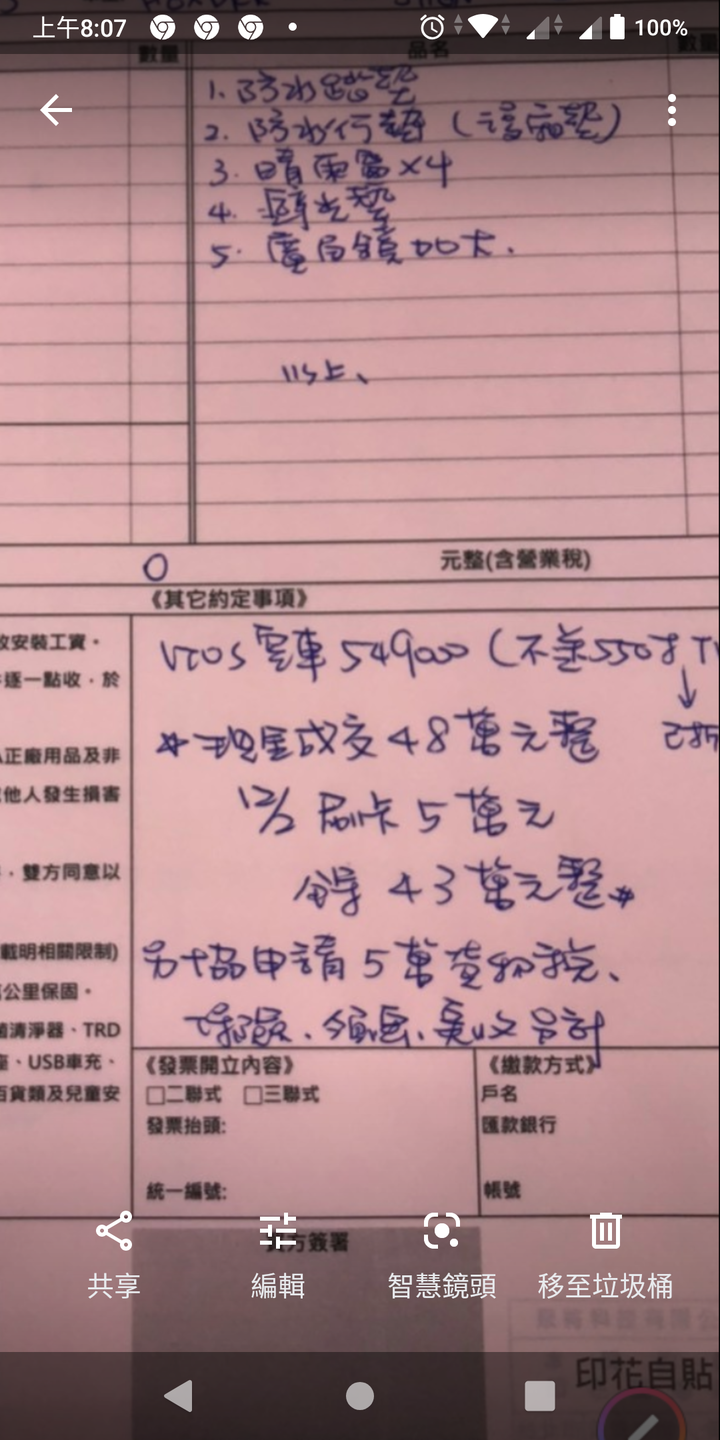 上午8:07
100%
數量
品名
數量
1. 防水踏墊
2. 防水行李箱墊)
3. 晴雨窗×4
4. 避光墊
5. 廣角鏡加大.
以上、
0
元整(含營業稅)
《其它約定事項》
安裝工資。
VIOS 空車 549000 (不差550才
逐一點收,於
*現金成交 48萬元整
正廠用品及非
他人發生損害
12/2 刷卡 5萬元
,雙方同意以
43萬元整#
載明相關限制)
另協申請 5萬貨物稅、
公里保固。
領牌、另計
清淨器、TRD
《發票開立內容》
《繳款方式》
、USB車充、
□二聯式 □三聯式
戶名
百貨類及兒童安
發票抬頭:
匯款銀行
統一編號:
帳號
方簽署
共享
編輯
智慧鏡頭
移至垃圾桶
印花自貼